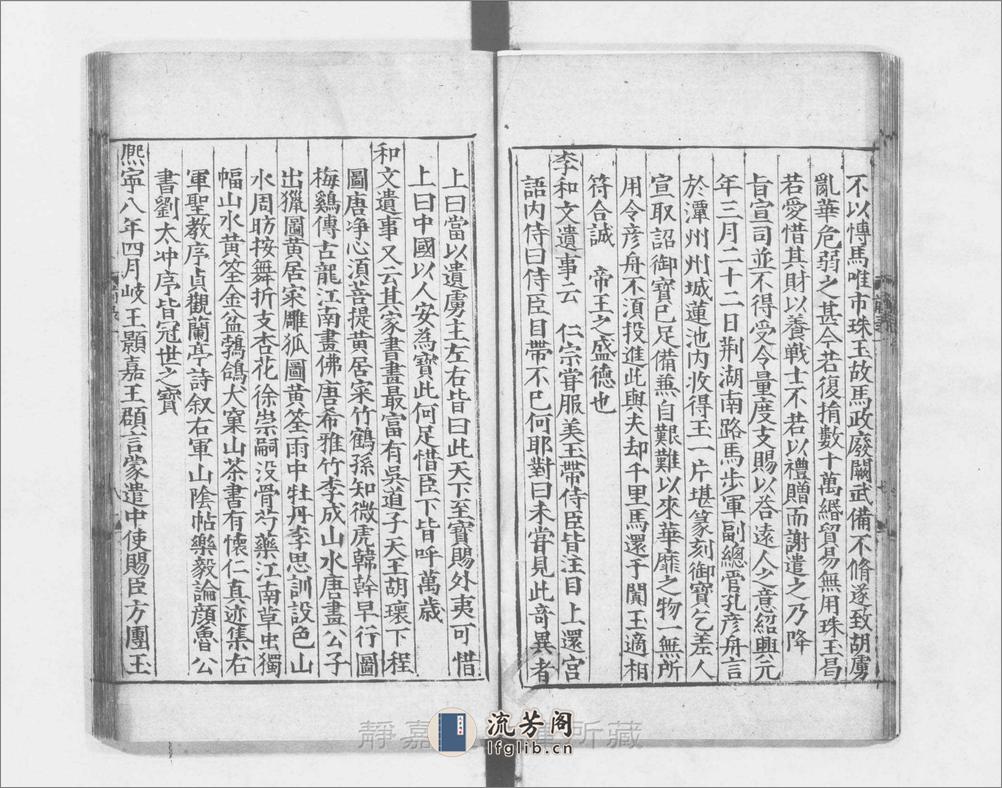 不以博馬唯市珠玉故馬政廢闕武備不脩遂致胡虜
亂華危弱之甚今若復捐數十萬緡貿易無用珠玉曷
若愛惜其財以養戰士不若以禮贈而謝遣之乃降
旨宣司並不得受令量度支賜以荅遠人之意紹興元
年三月二十二日荆湖南路馬步軍副總管孔彦舟言
於潭州州城蓮池内收得玉一片堪篆刻御寶乞差人
宣取詔御寶已足備兼自艱難以來華靡之物一無所
用令彦舟不須投進此與夫却千里馬還于闐玉適相
符合誠　帝王之盛德也
李和文遺事云　仁宗甞服美玉帶侍臣皆汪目上還宫
語内侍曰侍臣目帶不已何耶對曰未甞見此竒異者
上曰當以遺虜主左右皆曰此天下至寳賜外夷可惜
上曰中國以人安為寳此何足惜臣下皆呼萬歳
和文遺事又云其家書畫最富有吳道子天王胡瓌下程
圖唐净心湏菩提黄居寀竹鶴孫知微虎韓幹早行圖
梅鷄傳古龍江南畫佛唐希雅竹李成山水唐畫公子
出獵圖黄居寀雕狐圖黄筌雨中牡丹李思訓設色山
水周昉按舞折支杏花徐崇嗣没骨芍藥江南草虫獨
幅山水黄筌金盆鵓鴿大窠山茶書有懷仁真迹集右
軍聖教序貞觀蘭亭詩叙右軍山陰帖樂毅論顔魯公
書劉太冲序皆冠世之寳
熈寜八年四月岐王顥嘉王頵言蒙遣中使賜臣方團玉
流芳阁
lfglib.cn
靜嘉
所藏